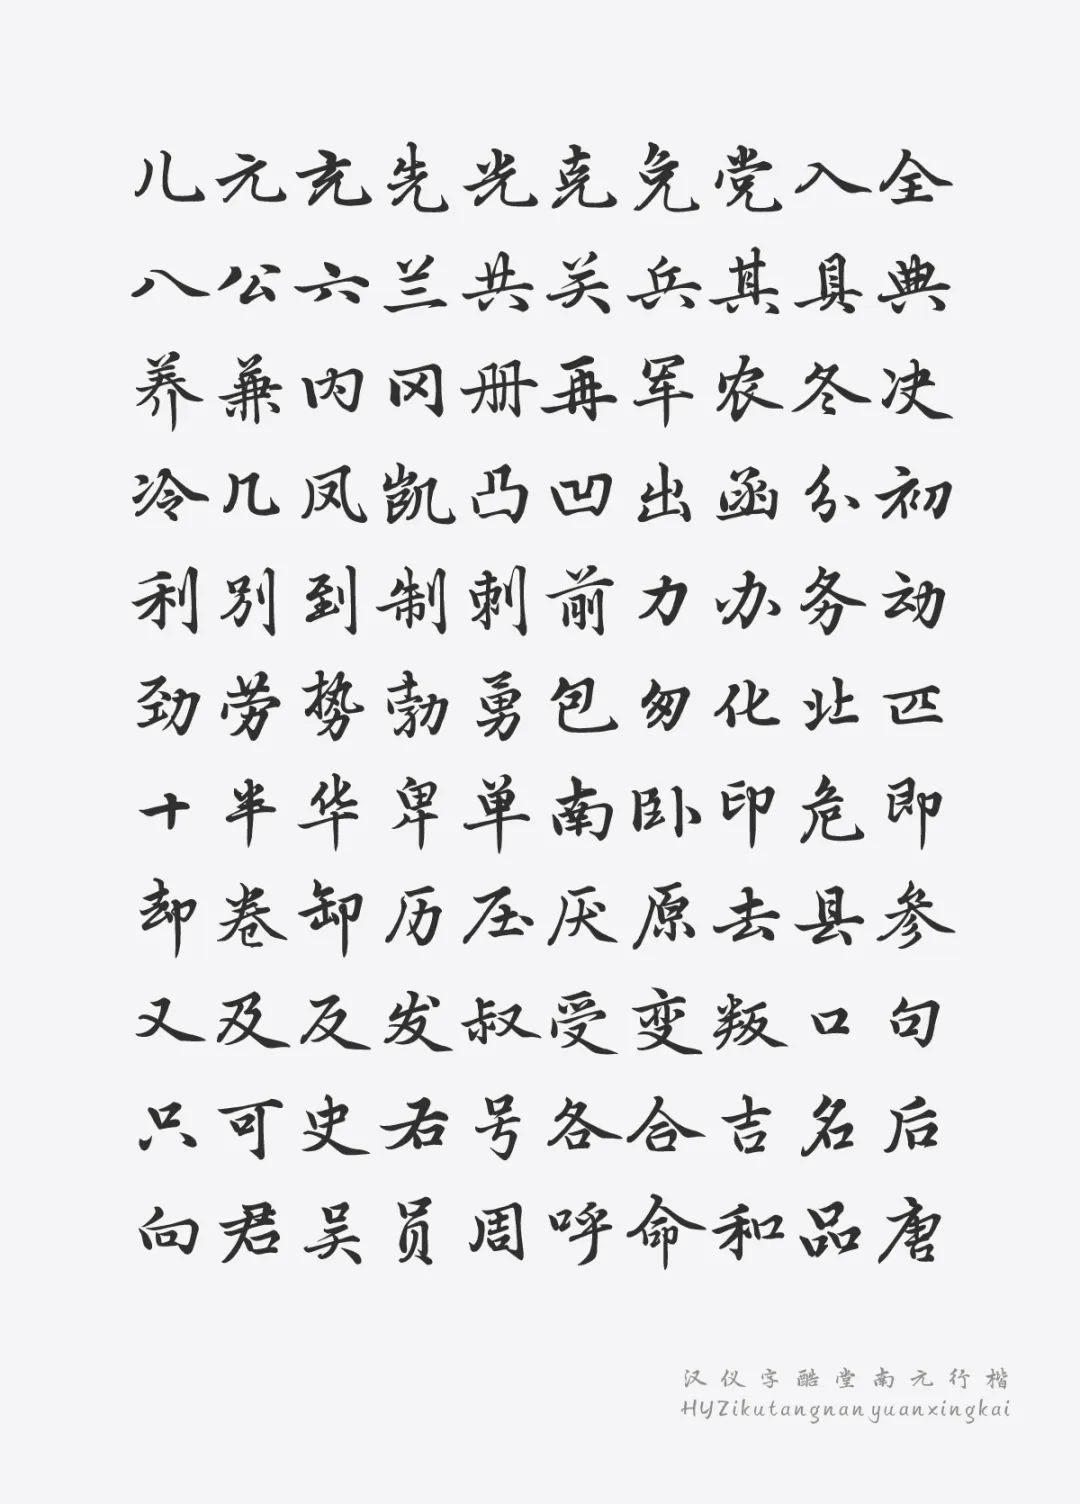 儿元充先光克免党入全
八公六兰共关兵其具典
养兼内冈册再军农冬决
冷几凤凯凸凹出函分初
利别到制刺前力办务动
劲劳势勃勇包匆化北匹
十半华卑单南卧印危即
却卷卸历压厌原去县参
又及反发叔受变叛口句
只可史右号各合吉名后
向君吴员周呼命和品唐
汉仪字酷堂南元行楷
HYZikutangnanyuanxingkai